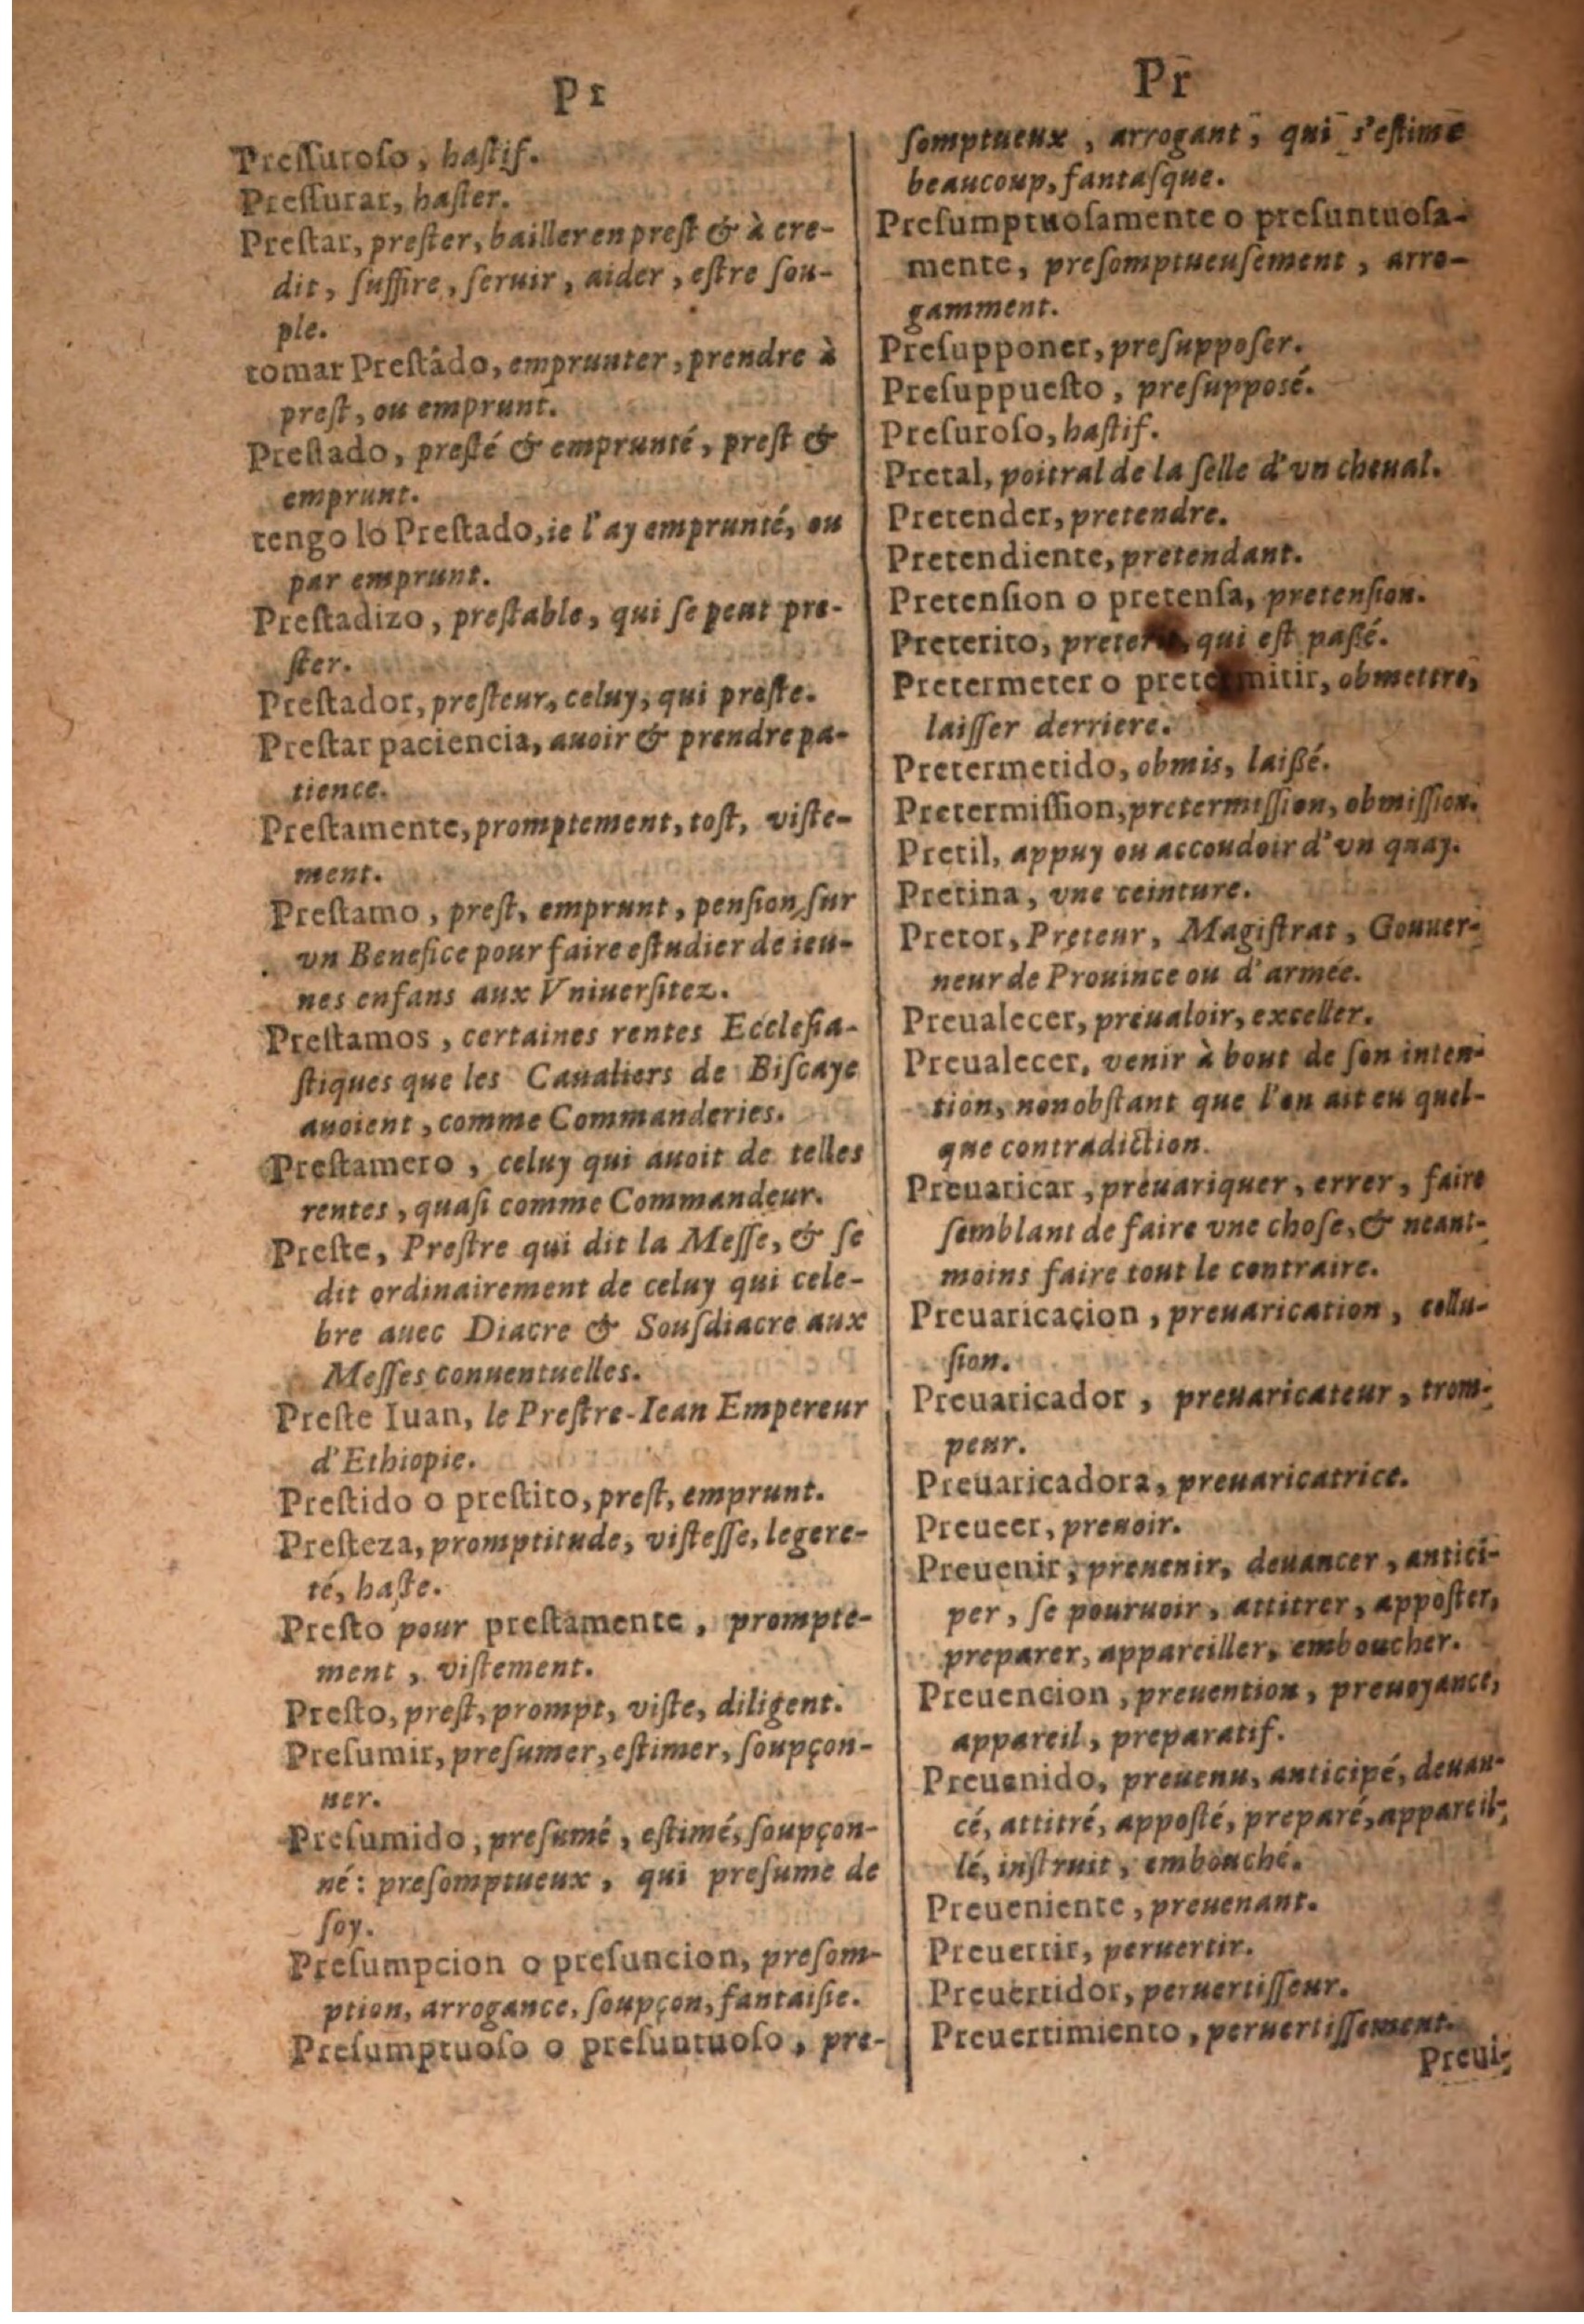 Pr
Preſſuroſo, haſtif.
Preſſurar, haſter.
Preſtar, preſter, bailler en preſt & à cre-
dit, ſuffire, ſeruir, aider, eſtre ſou-
ple.
tomar Preſtado, emprunter, prendre à
preſt, ou emprunt.
Preſtado, preſté & emprunté, preſt &
emprunt.
tengo lo Preſtado, ie l'ay emprunté, ou
par emprunt.
Preſtadizo, preſtable, qui ſe peut pre-
ſter.
Preſtador, preſteur, celuy, qui preſte.
Preſtar paciencia, auoir & prendre pa-
tience.
Preſtamente, promptement, toſt, viſte-
ment.
Preſtamo, preſt, emprunt, penſion ſur
vn Benefice pour faire eſtudier de ieu-
nes enfans aux Vniuerſitez.
Preſtamos, certaines rentes Eccleſia-
ſtiques que les Caualiers de Biſcaye
auoient, comme Commanderies.
Preſtamero, celuy qui auoit de telles
rentes, quaſi comme Commandeur.
Preſte, Preſtre qui dit la Meſſe, & ſe
dit ordinairement de celuy qui cele-
bre auec Diacre & Sousdiacre aux
Meſſes conuentuelles.
Preſte Iuan, le Preſtre-Iean Empereur
d'Ethiopie.
Preſtido o preſtito, preſt, emprunt.
Preſteza, promptitude, viſteſſe, legere-
té, haſte.
Preſto pour preſtamente, prompte-
ment, viſtement.
Preſto, preſt, prompt, viſte, diligent.
Preſumir, preſumer, eſtimer, ſoupçon-
ner.
Preſumido, preſumé, eſtimé, ſoupçon-
né: preſomptueux, qui preſume de
ſoy.
Preſumpcion o preſuncion, preſom-
ption, arrogance, ſoupçon, fantaiſie.
Preſumptuoſo o preſuntuoſo, pre-
Pr
ſomptueux, arrogant, qui s'eſtime
beaucoup, fantaſque.
Preſumptuoſamente o preſuntuoſa-
mente, preſomptueuſement, arro-
gamment.
Preſupponer, preſuppoſer.
Preſuppueſto, preſupposé.
Preſuroſo, haſtif.
Pretal, poitral de la ſelle d'vn cheual.
Pretender, pretendre.
Pretendiente, pretendant.
Pretenſion o pretenſa, pretenſion.
Preterito, qui eſt paßé.
Pretermeter o pretermitir, obmettre,
laiſſer derriere.
Pretermetido, obmis, laißé.
Pretermiſſion, pretermiſſion, obmiſſion.
Pretil, appuy ou accoudoir d'vn quay.
Pretina, vne ceinture.
Pretor, Preteur, Magiſtrat, Gouuer-
neur de Prouince ou d'armée.
Preualecer, preualoir, exceller.
Preualecer, venir à bout de ſon inten-
tion, nonobſtant que l'on ait eu quel-
que contradiction.
Preuaricar, preuariquer, errer, faire
ſemblant de faire vne choſe, & neant-
moins faire tout le contraire.
Preuaricaçion, preuarication, collu-
ſion.
Preuaricador, preuaricateur, trom-
peur.
Preuaricadora, preuaricatrice.
Preueer, preuoir.
Preuenir, preuenir, deuancer, antici-
per, ſe pouruoir, attitrer, appoſter,
preparer, appareiller, emboucher.
Preuencion, preuention, preuoyance,
appareil, preparatif.
Preuenido, preuenu, anticipé, deuan-
cé, attitré, appoſté, preparé, appareil-
lé, inſtruit, embouché.
Preueniente, preuenant.
Preuertir, peruertir.
Preuertidor, peruertiſſeur.
Preuertimiento, peruertiſſement.
Preui-